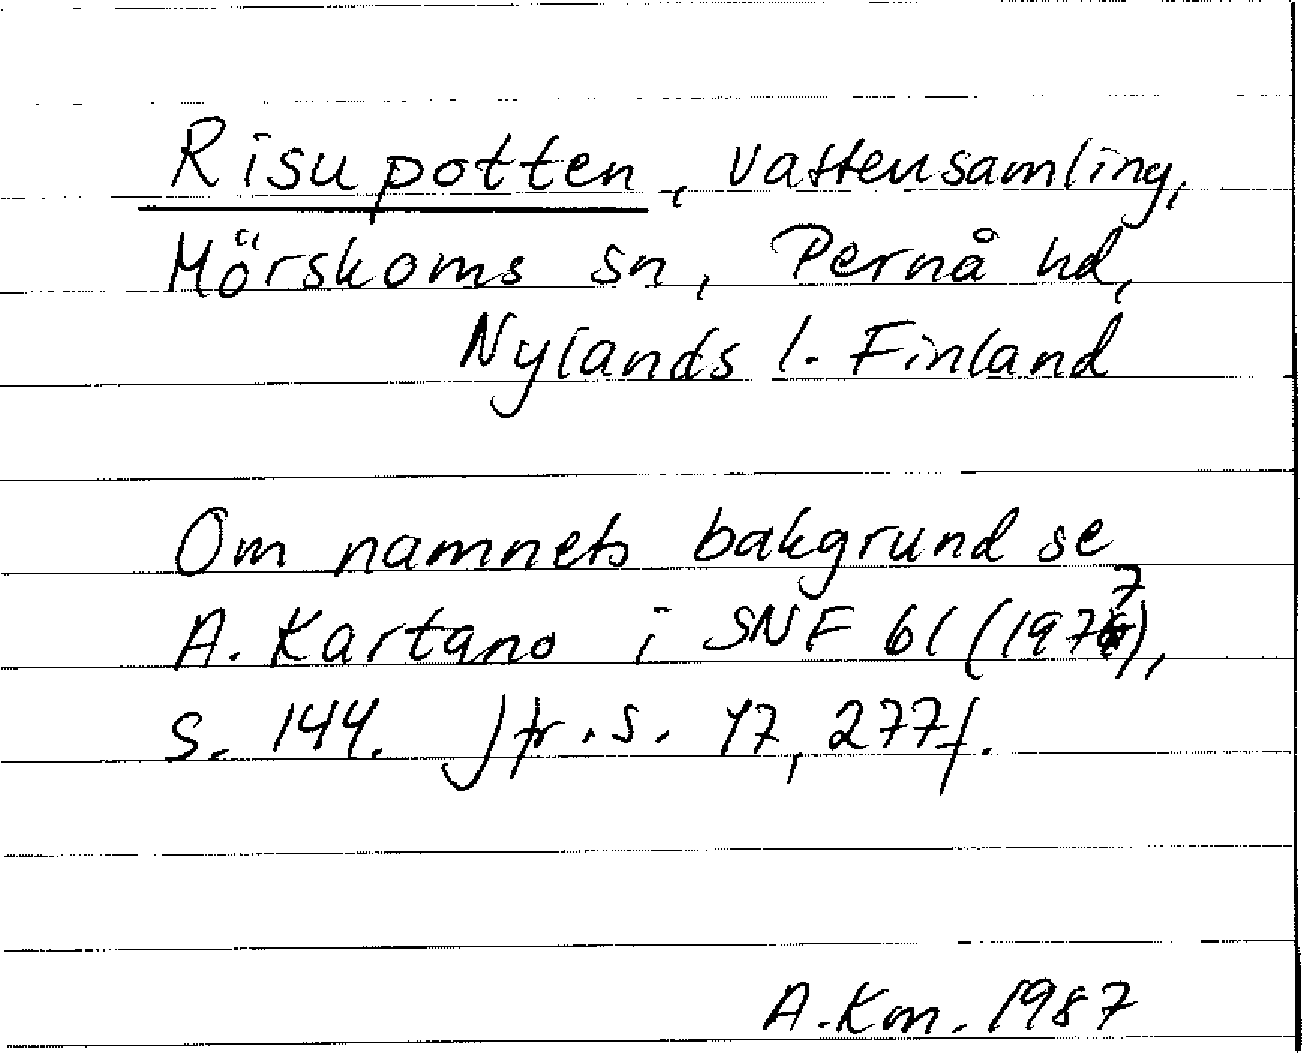 Risupotten, vattensamling,
Mörskoms sn, Pernå hd,
Nylands l. Finland
Om namnets bakgrund se
A. Kartano i SNF 61 (1977),
s. 144. Jfr. s. 17, 277f.
A. Km. 1987